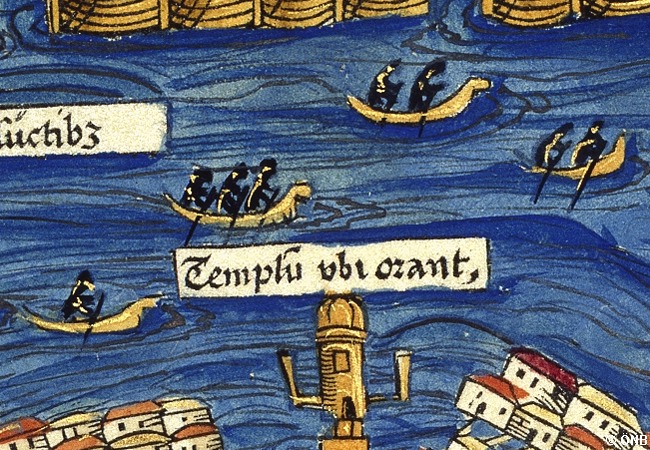 uctibꝫ
Templū vbi orant,
© ÖNB